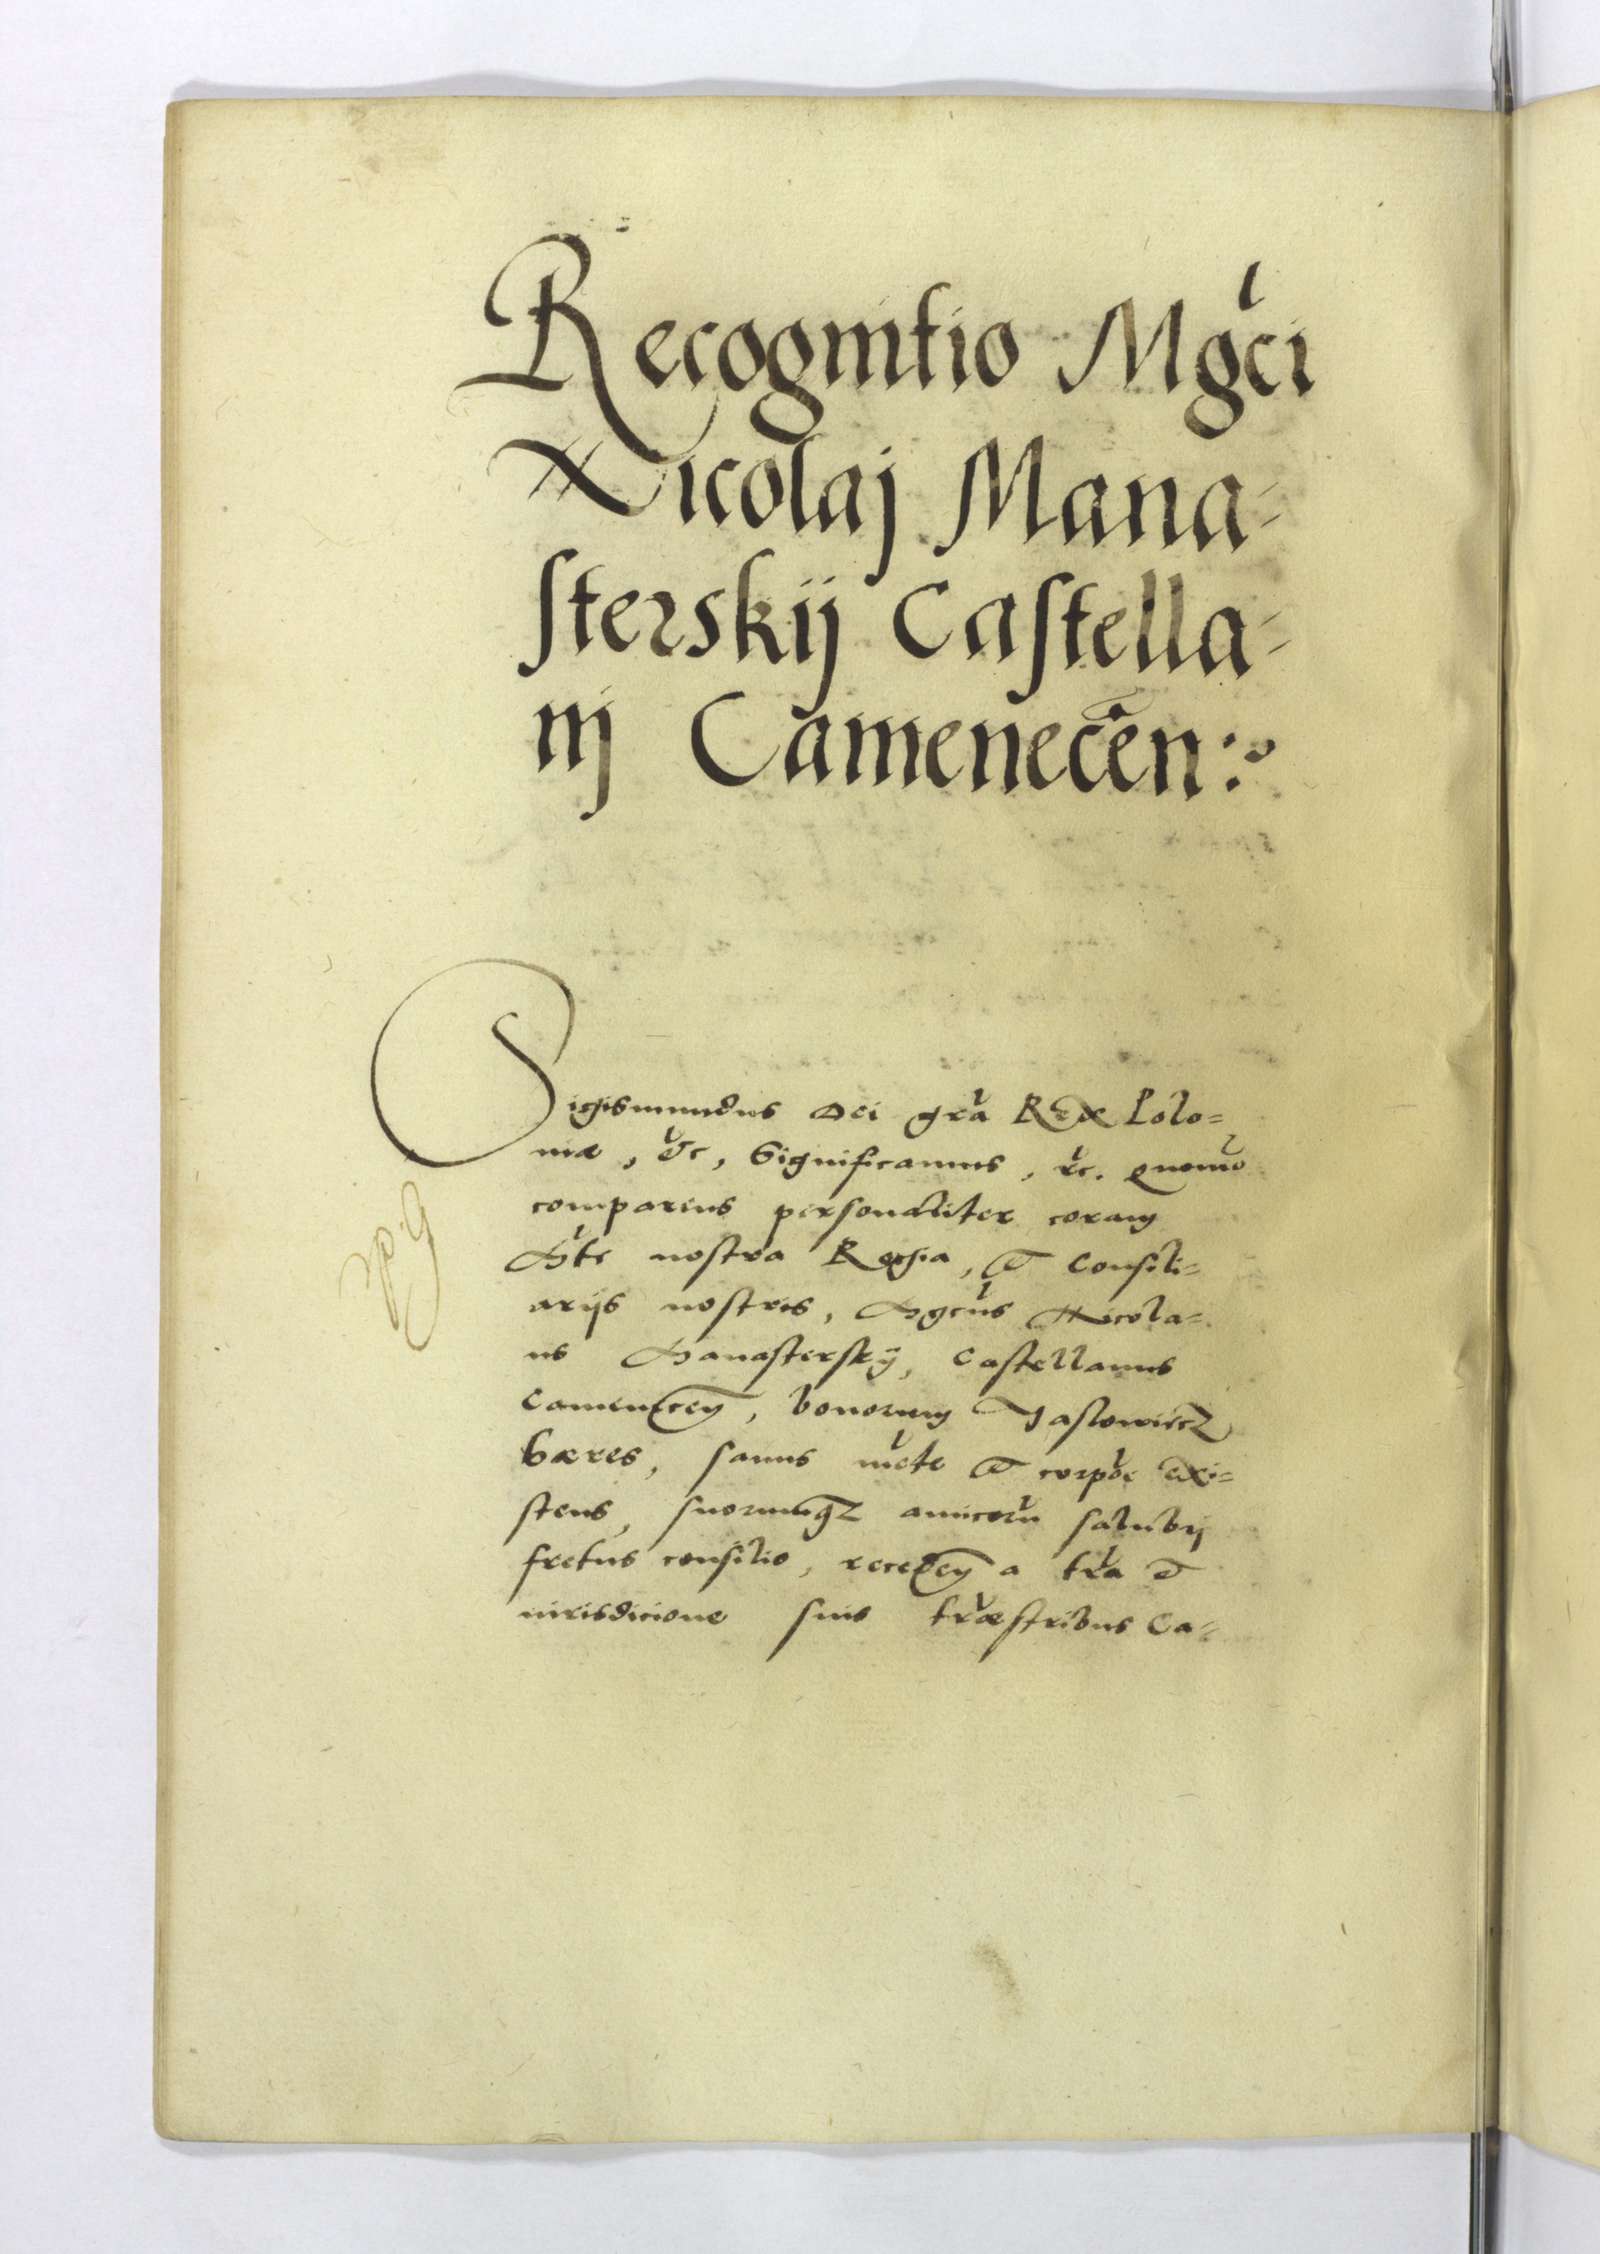 Recognitio Mgci
Nicolaj Mana-
sterskij Castella-
nj Camenecen:
Sigismundus Dei gra Rex Polo=
niæ, &c, Significamus, &c. quomo
comparens personaliter coram
Mte nostra Regia, et Consili=
arijs nostris, Mgcus Nicola=
us Manasterskij, Castellanus
Camenecen, bonorum Jaslowiecz
hæres, sanus mete et corpoe exi=
stens, suorumqz amicoru salubrj
fretus consilio, receden a tra et
iurisdicione suis træstribus Ca=